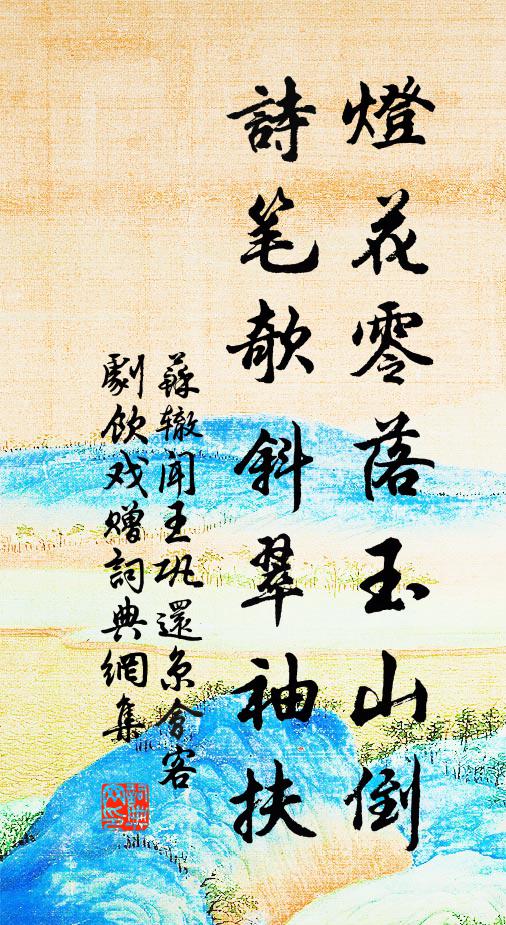 燈花零落玉山倒
詩笔欹斜翠袖扶
蘇辙闻王巩還京會客
劇飲戏赠詞典網集